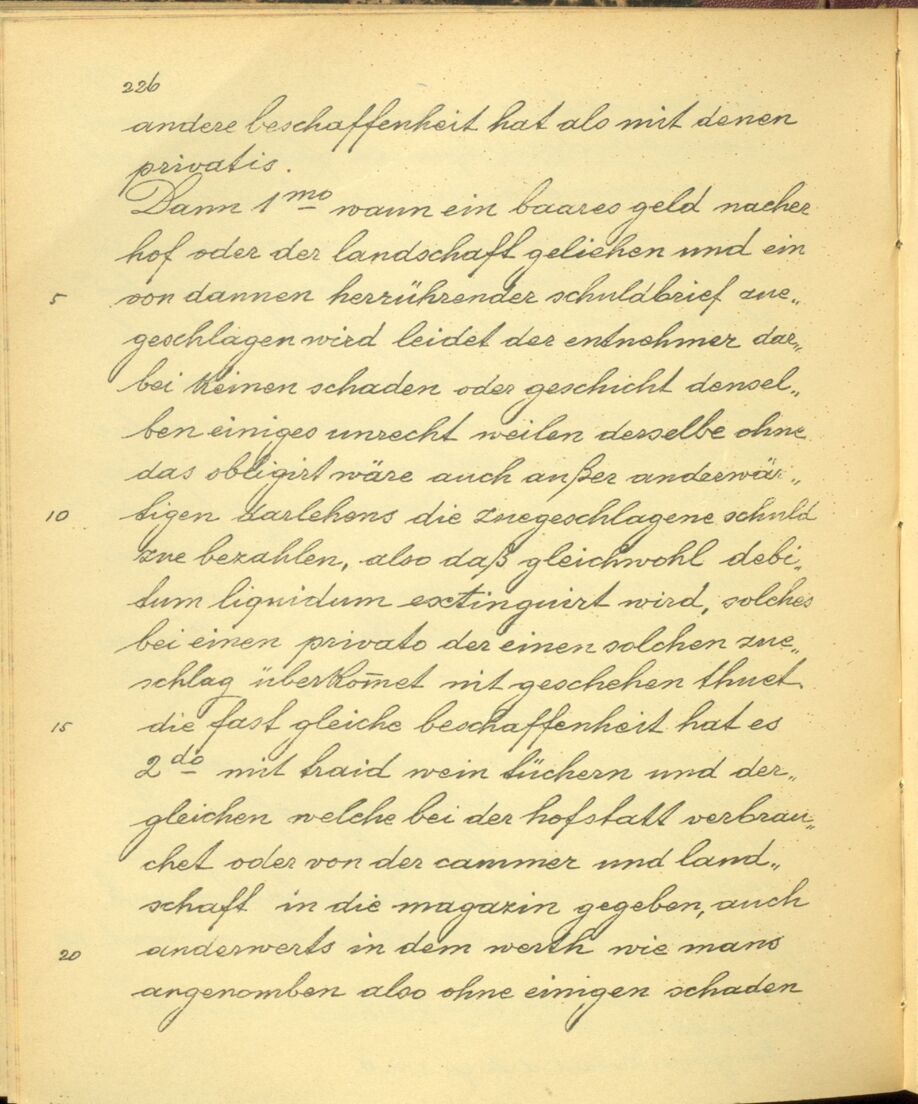 226
andere beschaffenheit hat als mit denen
privatis.
Dann 1mo wann ein baares geld nacher
hof oder der landschaft geliehen und ein
5 von dannen herrührender schuldbrief zue„
geschlagen wird leidet der entnehmer dar„
bei keinen schaden oder geschicht densel„
ben einiges unrecht weilen derselbe ohne
das obligirt wäre auch außer anderwär„
10 tigen darlehens die zuegeschlagene schuld
zue bezahlen, also daß gleichwohl debi„
tum liquidum exstinguirt wird, solches
bei einen privato der einen solchen zue„
schlag überkom̄et nit geschehen thuet.
15 die fast gleiche beschaffenheit hat es
2do mit traid wein tüchern und der„
gleichen welche bei der hofstatt verbrau„
chet oder von der cammer und land„
schaft in die magazin gegeben, auch
20 anderwerts in dem werth wie mans
angenomben also ohne einigen schaden